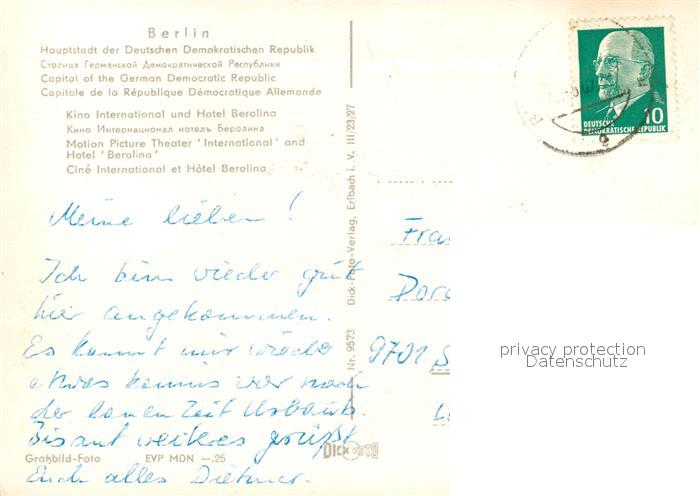 Berlin
Hauptstadt der Deutschen Demokratischen Republik
Столица Германской Демократической Республики
Capital of the German Democratic Republic
Capitale de la République Démocratique Allemande
Kino International und Hotel Berolina
Кино Интернационал хотель Беролина
Motion Picture Theater 'International' and
Hotel 'Berolina'
Ciné International et Hôtel Berolina
Meine lieben!
Ich bin wieder gut
hier angekommen.
Es kommt mir wieder
etwas vor nach
der Zeit Urlaub.
Bis auf weiteres grüßt
Euch alles Dietmar.
Großbild-Foto EVP MDN —.25
Dick-Foto-Verlag, Erlbach i. V. III/23/27
Nr. 9573
Dick FOTO
10
DEUTSCHE
DEMOKRATISCHE REPUBLIK
Frau
9701
privacy protection
Datenschutz